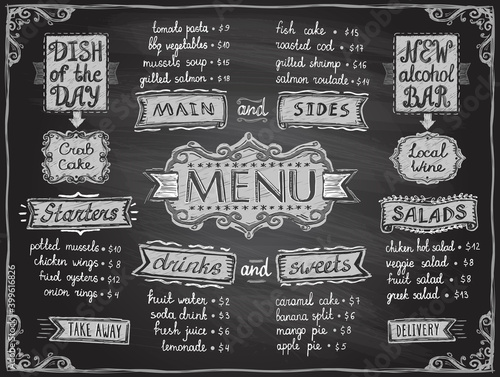 DISH
of the
DAY
Crab
Cake
tomato pasta • $ 9
bbq vegetables • $ 10
mussels soup • $ 15
grilled salmon • $ 18
fish cake • $ 15
roasted cod • $ 17
grilled shrimp • $ 16
salmon roulade • $ 14
MAIN and SIDES
NEW
alcohol
BAR
Local
Wine
MENU
Starters
potted mussels • $ 10
chicken wings • $ 8
fried oysters • $ 12
onion rings • $ 4
TAKE AWAY
drinks and sweets
fruit water • $ 2
soda drink • $ 3
fresh juice • $ 6
lemonade • $ 4
caramel cake • $ 7
banana split • $ 6
mango pie • $ 4
apple pie • $ 5
SALADS
chiken hot salad • $ 12
veggie salad • $ 8
fruit salad • $ 8
greek salad • $ 13
DELIVERY
Adobe Stock | #399616826